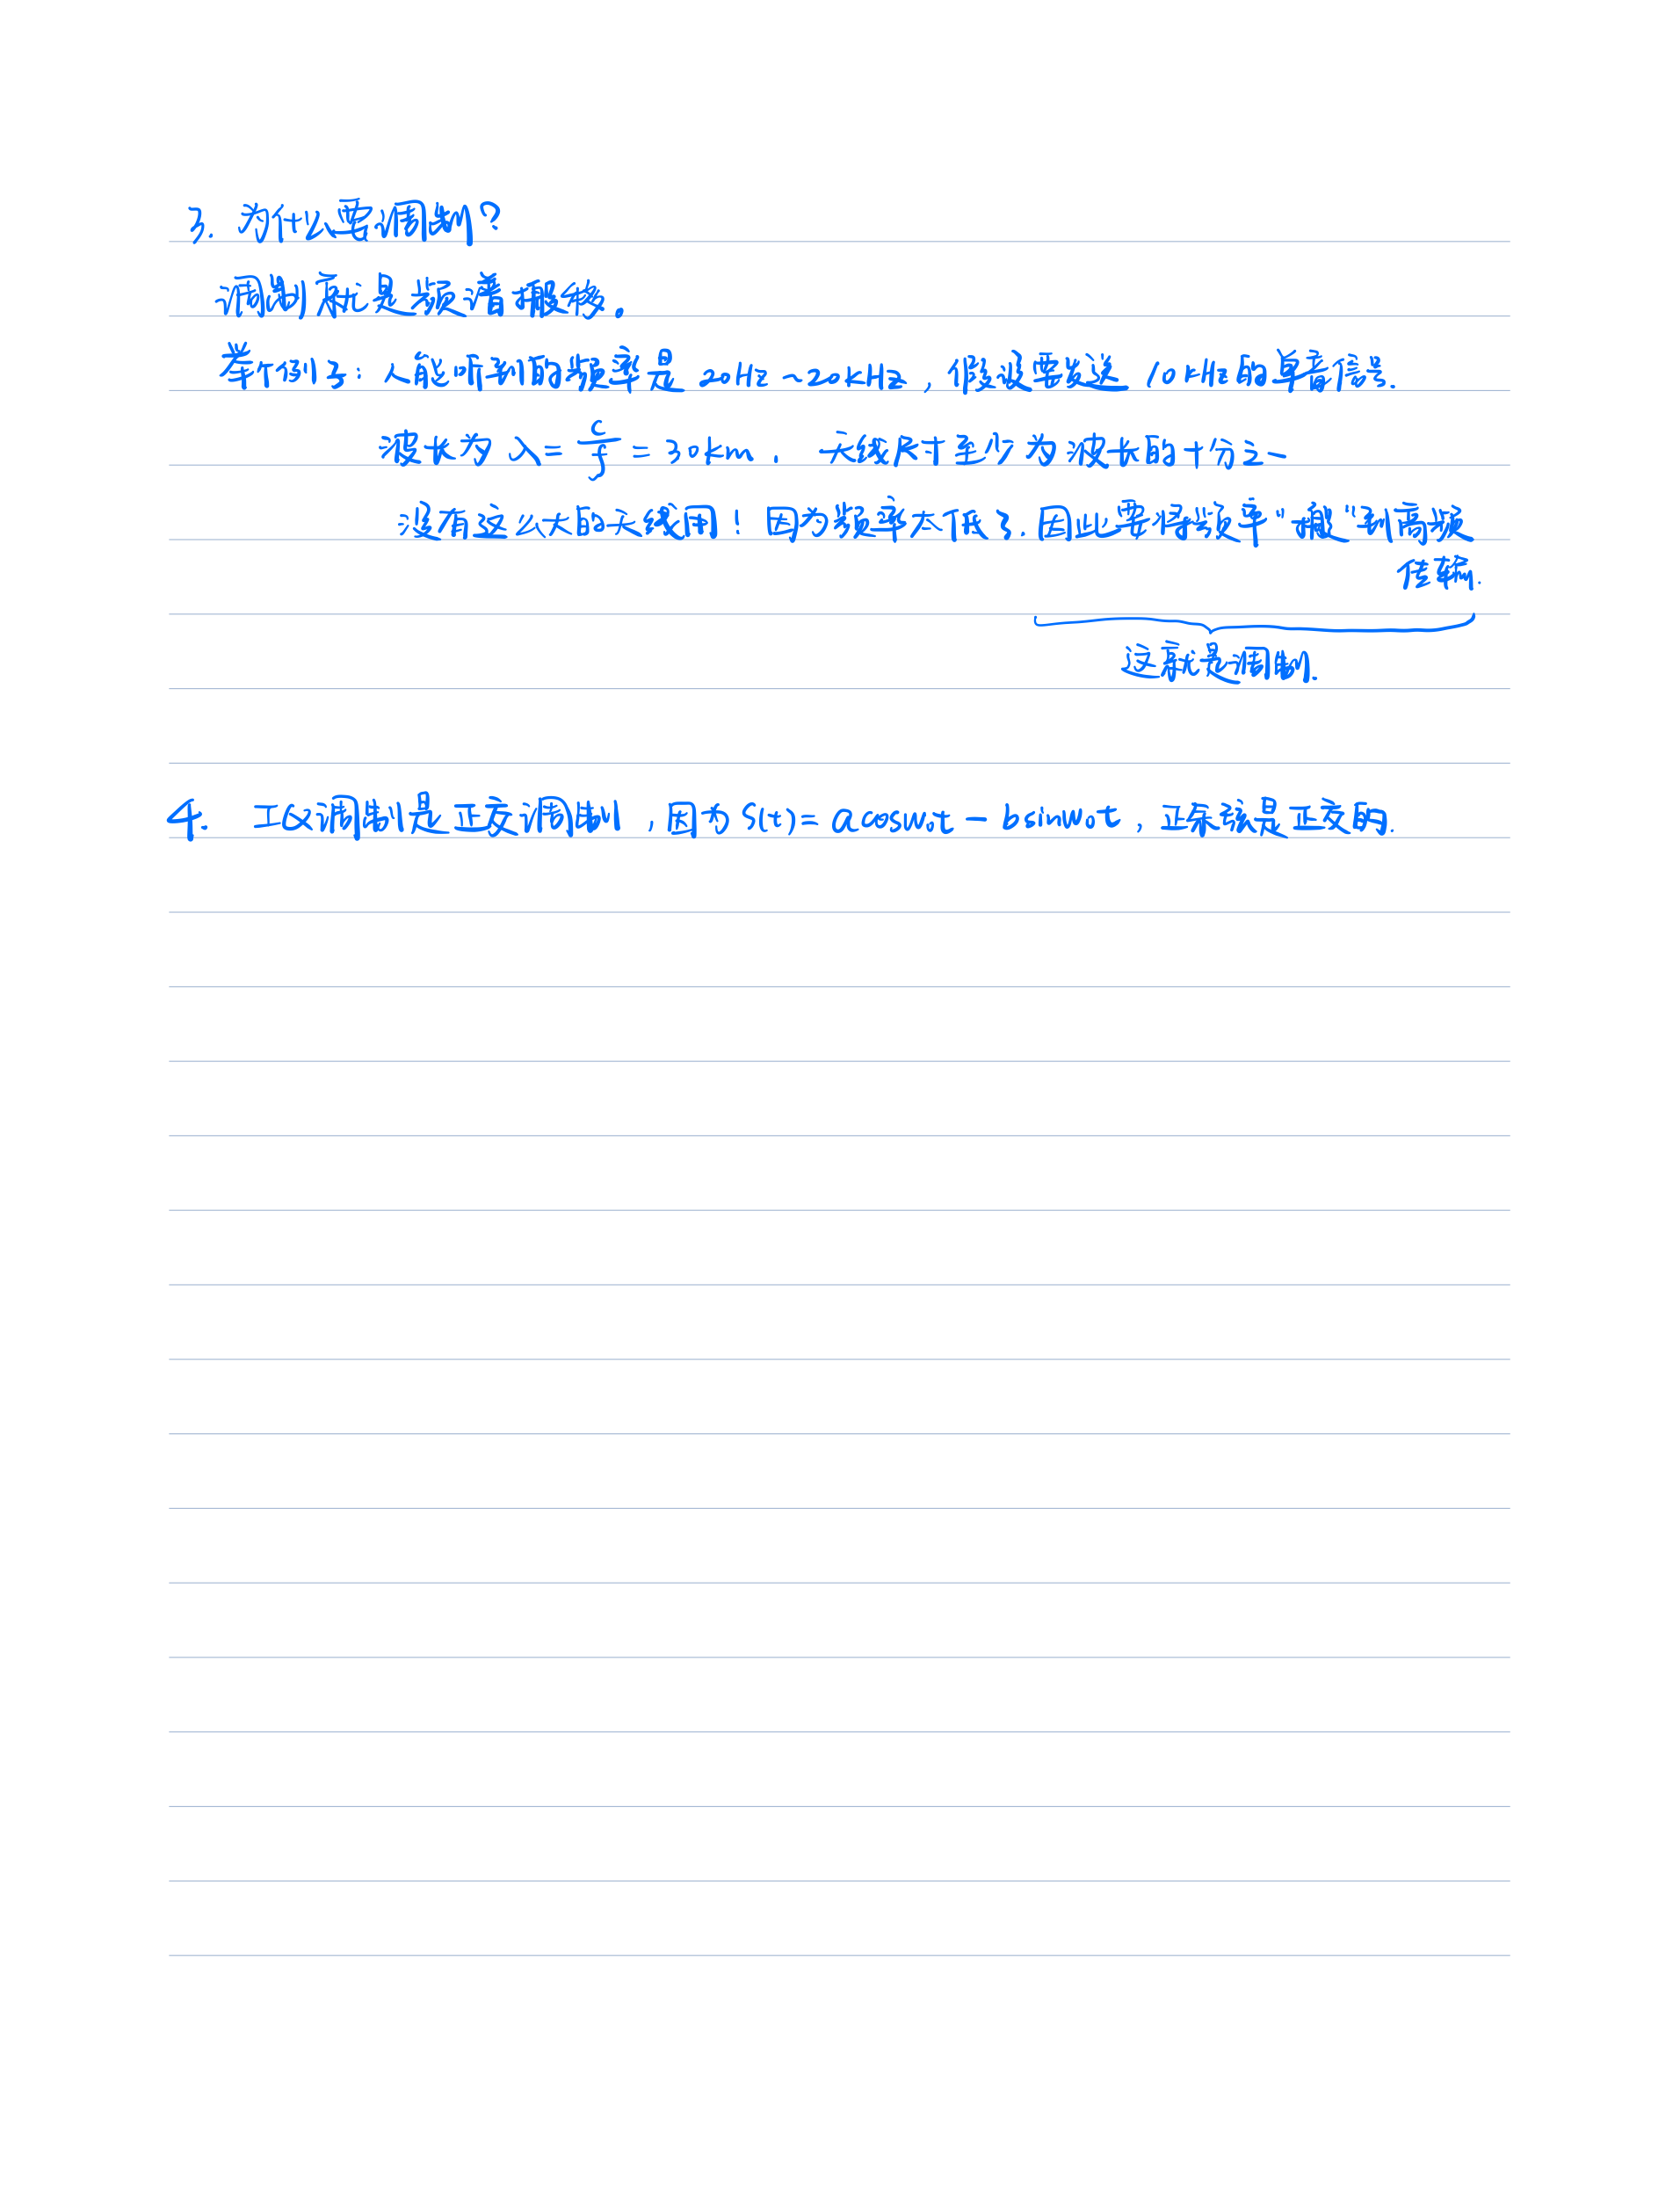 3. 为什么要调制?
调制就是频谱搬移。
举个例子: 人能听到的频率是 20Hz ~20kHz, 假设要发送 10kHz的单音信号.
波长为 λ= c/f = 30km, 天线尺寸至少为波长的十分之一
没有这么大的天线用! 因为频率太低了. 因此要将频率"搬"到高频
传输.
这就是调制.
4. IQ调制是正交调制, 因为 S(t)= a cosw₀t - b sinw₀t, 正余弦是正交的.